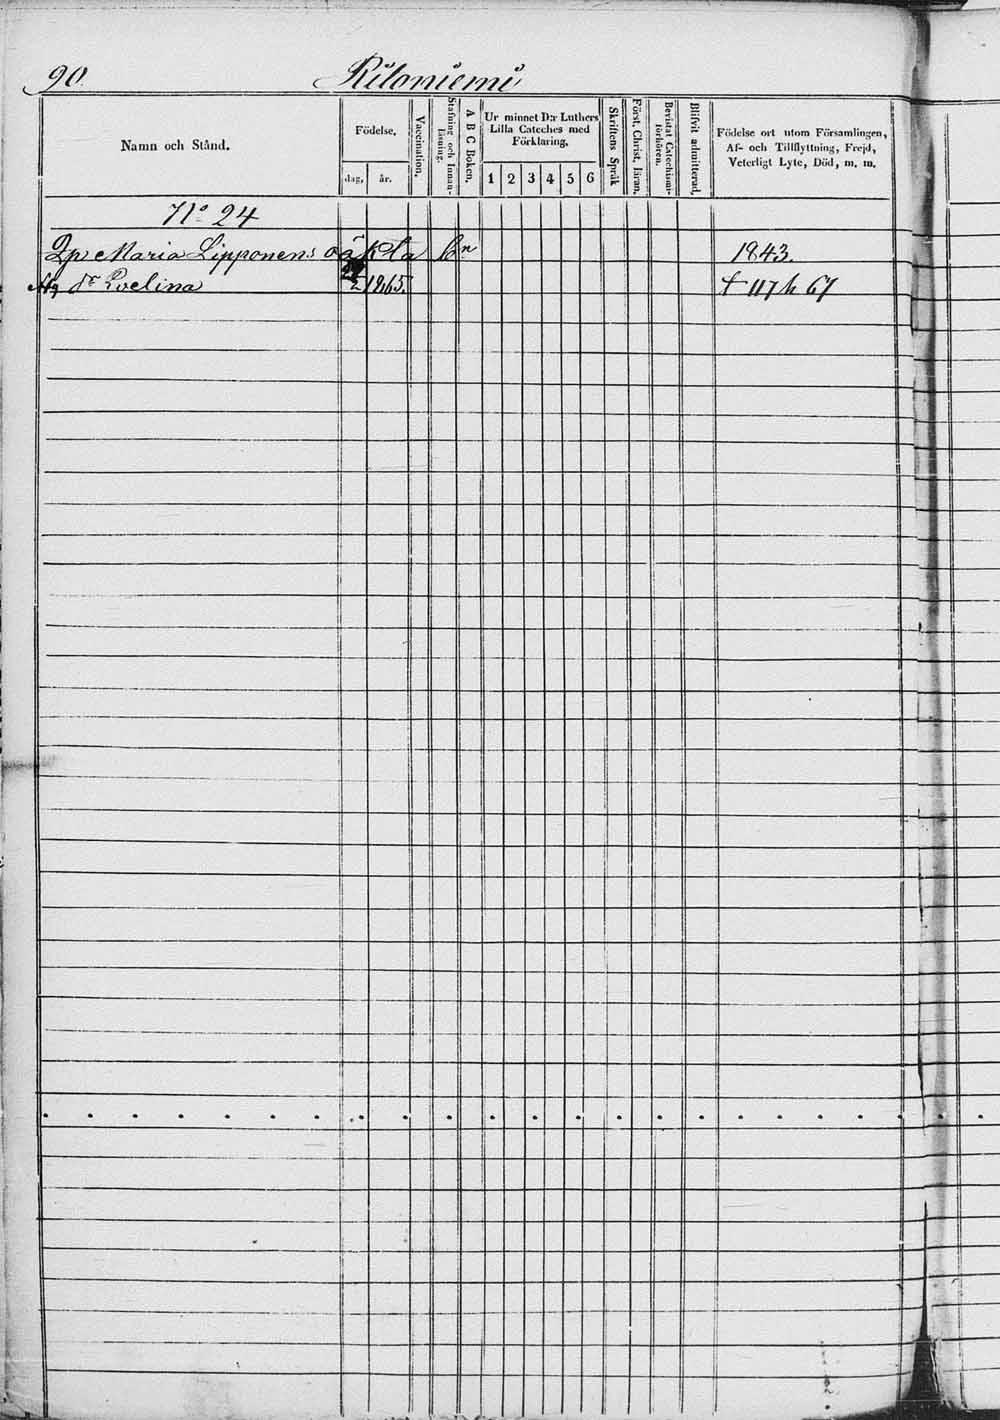 90. Ritoniemi
Namn och Stånd.
Födelse.
dag. år.
Vaccination.
Stafning och Innanläsning.
A B C Boken.
Ur minnet D:r Luthers
Lilla Cateches med
Förklaring.
1 2 3 4 5 6
Skriftens Språk
Först. Christ. läran.
Bevistat Catechismiförhören.
Blifvit admitterad.
Födelse ort utom Församlingen,
Af- och Tillflyttning, Frejd,
Veterligt Lyte, Död, m. m.
No 24
Maria Lipponens oäkta 1843.
dr Evelina 1865. † 67